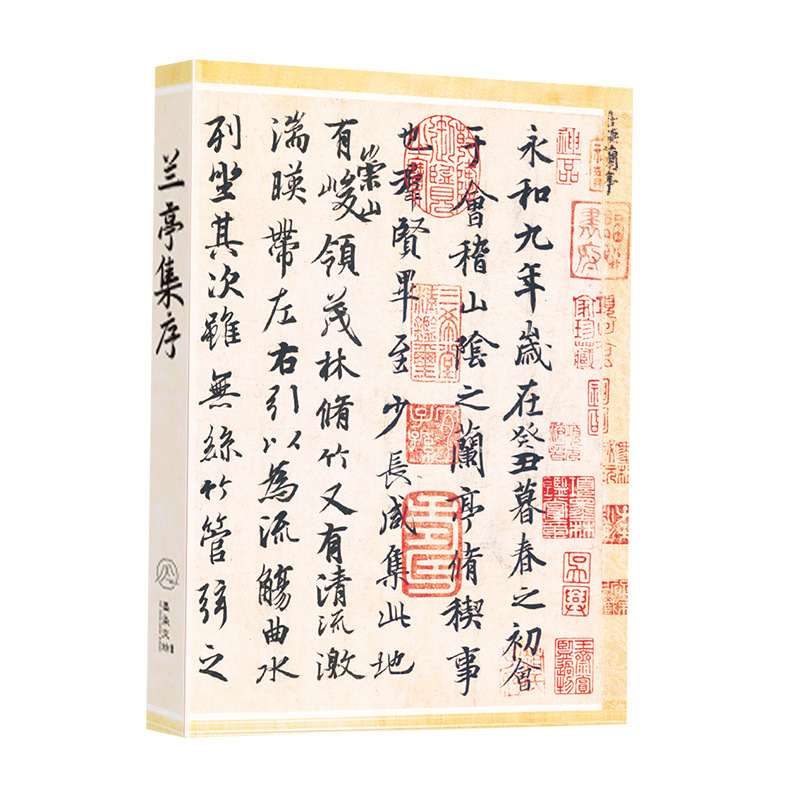 蘭亭
神品
永和九年歲在癸丑暮春之初會
于會稽山陰之蘭亭脩稧事
也羣賢畢至少長咸集此地
有崇山峻領茂林脩竹又有清流激
湍暎帶左右引以為流觴曲水
列坐其次雖無絲竹管弦之
兰亭集序